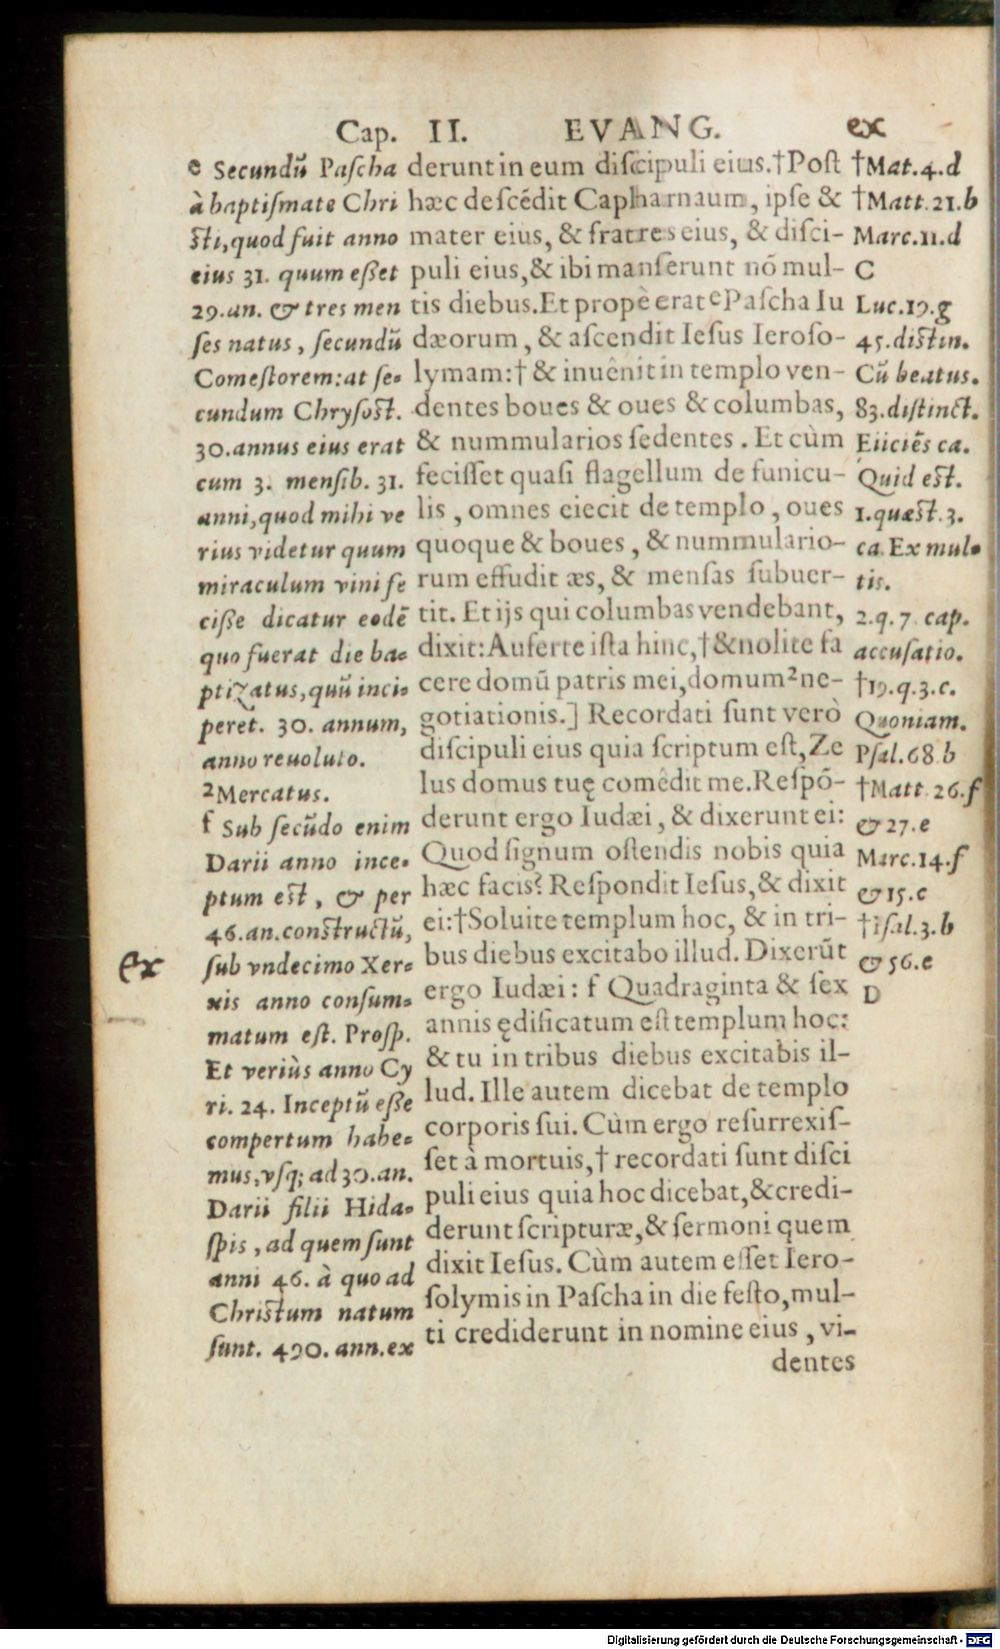 Cap. II. EVANG.
ex
e Secundũ Pascha
à baptismate Chri
sti, quod fuit anno
eius 31. quum esset
29. an. & tres men
ses natus, secundũ
Comestorem: at se-
cundum Chrysost.
30. annus eius erat
cum 3. mensib. 31.
anni, quod mihi ve
rius videtur quum
miraculum vini fe
cisse dicatur eodẽ
quo fuerat die ba-
ptizatus, quũ inci-
peret. 30. annum,
anno reuoluto.
2 Mercatus.
f Sub secũdo enim
Darii anno ince-
ptum est, & per
46. an. constructũ,
sub vndecimo Xer-
xis anno consum-
matum est. Prosp.
Et veriùs anno Cy
ri. 24. Inceptũ esse
compertum habe-
mus, vsq; ad 30. an.
Darii filii Hida-
spis, ad quem sunt
anni 46. à quo ad
Christum natum
sunt. 490. ann. ex
ex
derunt in eum discipuli eius. †Post
hæc descẽdit Capharnaum, ipse &
mater eius, & fratres eius, & disci-
puli eius, & ibi manserunt nõ mul-
tis diebus. Et propè erat e Pascha Iu
dæorum, & ascendit Iesus Ieroso-
lymam: † & inuênit in templo ven-
dentes boues & oues & columbas,
& nummularios sedentes. Et cùm
fecisset quasi flagellum de funicu-
lis, omnes eiecit de templo, oues
quoque & boues, & nummulario-
rum effudit æs, & mensas subuer-
tit. Et ijs qui columbas vendebant,
dixit: Auferte ista hinc, † & nolite fa
cere domũ patris mei, domum 2 ne-
gotiationis.] Recordati sunt verò
discipuli eius quia scriptum est, Ze
lus domus tuę comêdit me. Respõ-
derunt ergo Iudæi, & dixerunt ei:
Quod signum ostendis nobis quia
hæc facis? Respondit Iesus, & dixit
ei: †Soluite templum hoc, & in tri-
bus diebus excitabo illud. Dixerũt
ergo Iudæi: f Quadraginta & sex
annis ędificatum est templum hoc:
& tu in tribus diebus excitabis il-
lud. Ille autem dicebat de templo
corporis sui. Cùm ergo resurrexis-
set à mortuis, † recordati sunt disci
puli eius quia hoc dicebat, & credi-
derunt scripturæ, & sermoni quem
dixit Iesus. Cùm autem esset Iero-
solymis in Pascha in die festo, mul-
ti crediderunt in nomine eius, vi-
dentes
†Mat. 4. d
†Matt. 21. b
Marc. 11. d
C
Luc. 19. g
45. distin.
Cũ beatus.
83. distinct.
Eiiciẽs ca.
Quid est.
1. quæst. 3.
ca. Ex mul-
tis.
2. q. 7. cap.
accusatio.
†19. q. 3. c.
Quoniam.
Psal. 68. b
†Matt. 26. f
& 27. e
Marc. 14. f
& 15. c
†Psal. 3. b
& 56. e
D
Digitalisierung gefördert durch die Deutsche Forschungsgemeinschaft - DFG